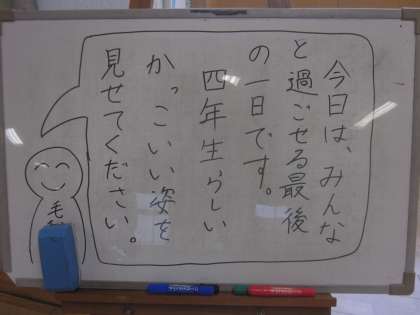 今日は、みんな
と過ごせる最後
の一日です。
四年生らしい
かっこいい姿を
見せてください。
毛